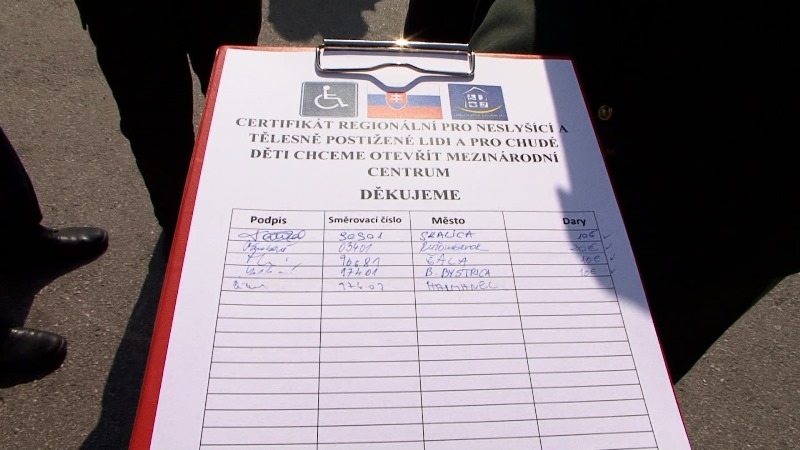 CERTIFIKÁT REGIONÁLNÍ PRO NESLYŠÍCÍ A
TĚLESNĚ POSTIŽENÉ LIDI A PRO CHUDÉ
DĚTI CHCEME OTEVŘÍT MEZINÁRODNÍ
CENTRUM
DĚKUJEME
Podpis Směrovací číslo Město Dary
90901 SKALICA 10€
03401 RUŽOMBEROK
90681 10€
17401 B. BYSTRICA 10€
HARMANEC